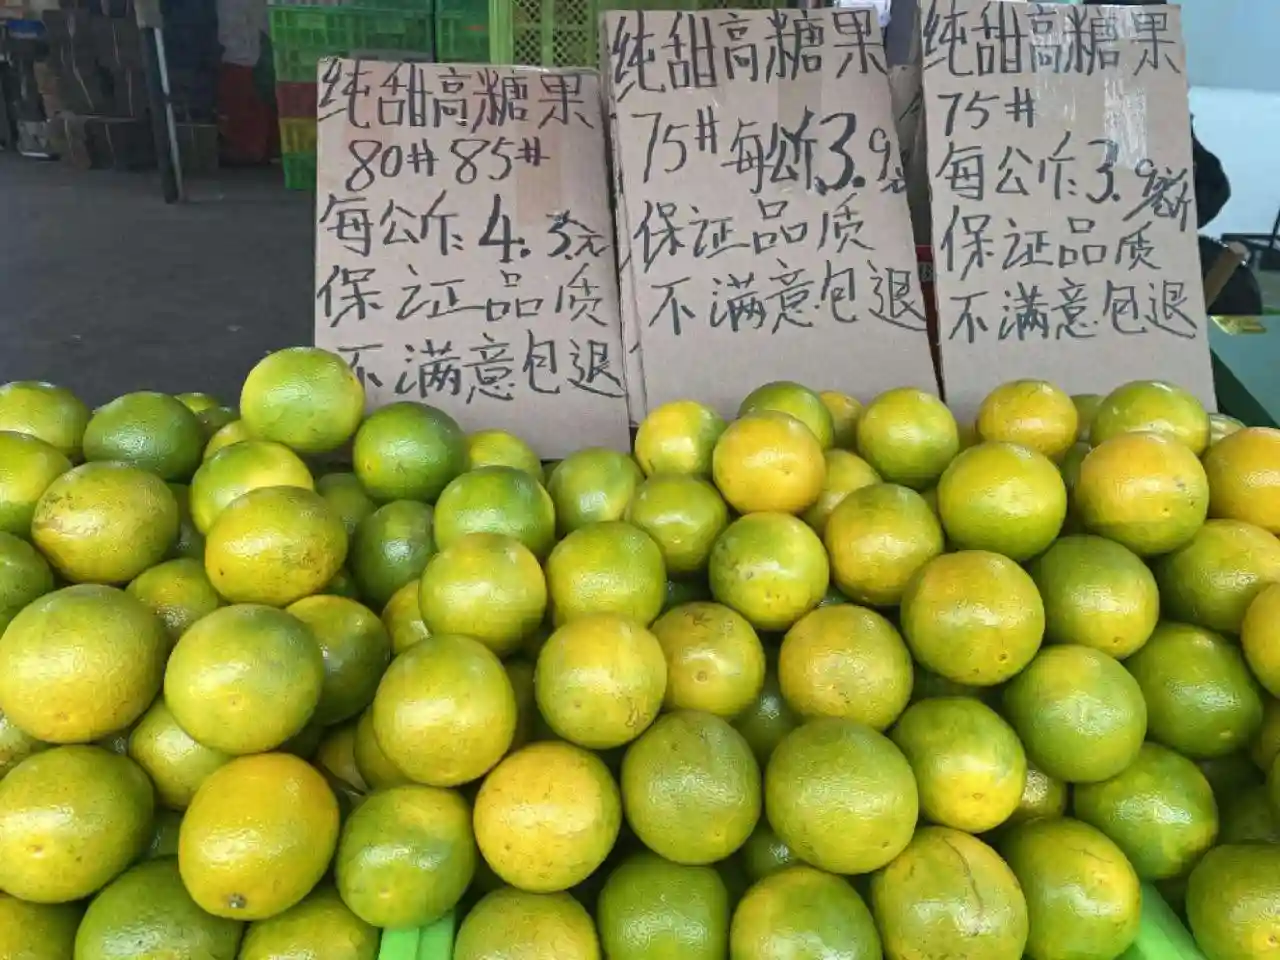 纯甜高糖果
80# 85#
每公斤:4.5元
保证品质
不满意包退
纯甜高糖果
75#每公斤3.9元
保证品质
不满意包退
纯甜高糖果
75#
每公斤:3.9
保证品质
不满意包退